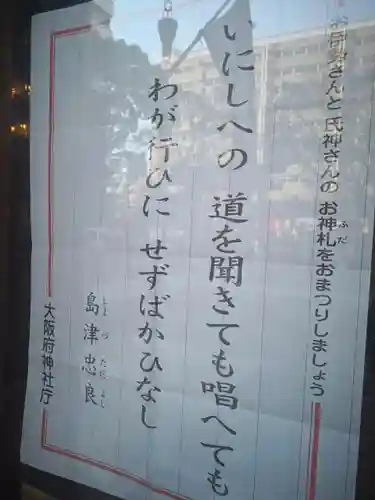 お伊勢さんと氏神さんの お神札をおまつりしましょう
ふだ
いにしへの 道を聞きても唱へても
わが行ひに せずばかひなし
島津忠良
しまづただよし
大阪府神社庁